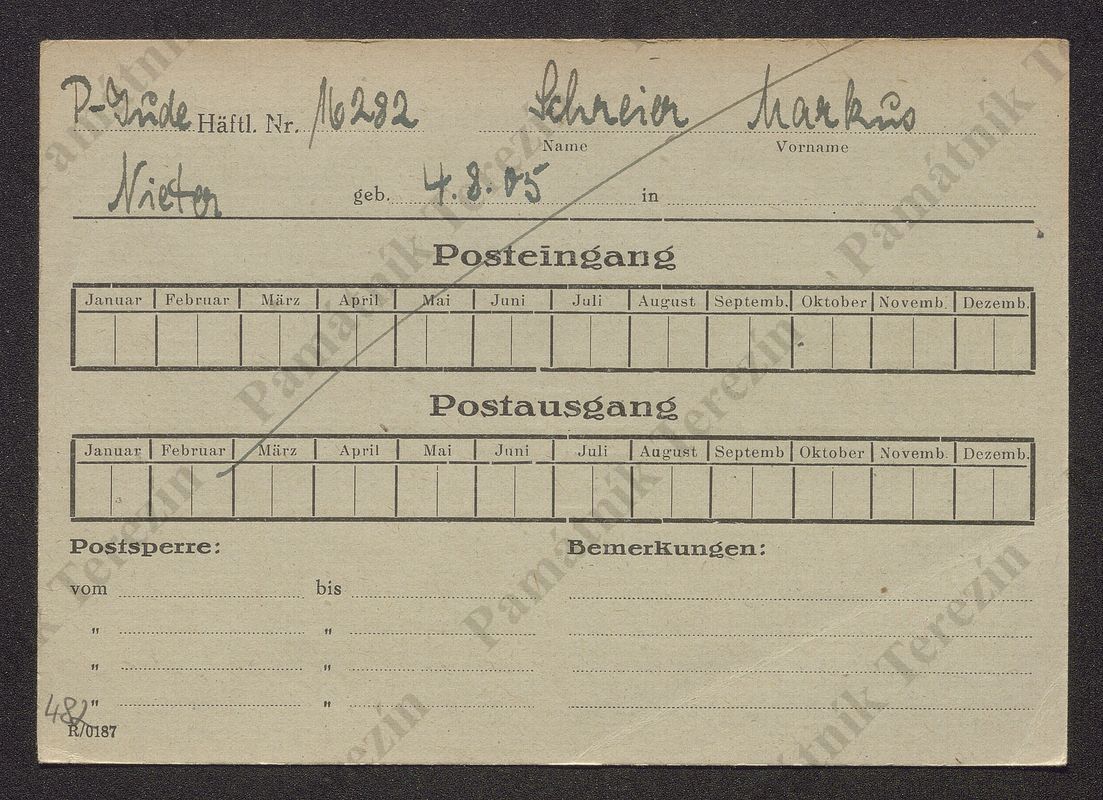 P-Jude Häftl. Nr. 16282 Schreier Markus
Name Vorname
Nieter geb. 4.8.05 in
Posteingang
Januar Februar März April Mai Juni Juli August Septemb. Oktober Novemb. Dezemb.
Postausgang
Januar Februar März April Mai Juni Juli August Septemb Oktober Novemb. Dezemb.
Postsperre: Bemerkungen:
vom bis
" "
" "
" "
482
R/0187
Památník Terezín